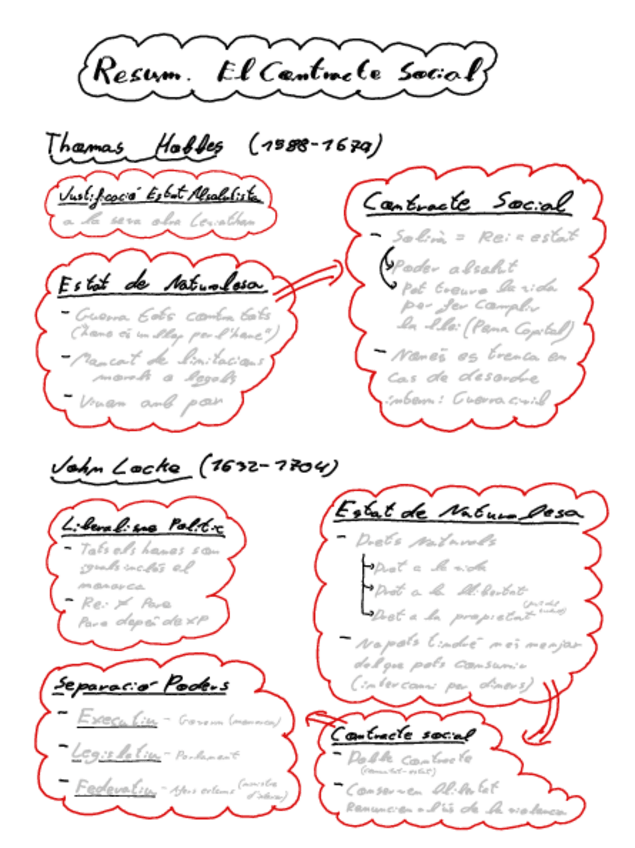 Resum. El Contracte Social
Thomas Hobbes (1588-1679)
Justificació Estat Absolutista
a la seva obra Leviathan
Estat de Naturalesa
- Guerra tots contra tots
("home és un llop per l'home")
- Mancat de limitacions
morals o legals
- Viuen amb por
Contracte Social
- = Rei = estat
Poder absolut
Pot treure la vida
per fer complir
la llei (Pena Capital)
- Només es trenca en
cas de desordre
intern: Guerra civil
John Locke (1632-1704)
Liberalisme Polític
- Tots els homes son
iguals inclòs el
monarca
- Rei ≠ Pare
Pare depèn de
Separació Poders
- Executiu - Govern (monarca)
- Legislatiu - Parlament
- Federatiu - Afers externs (ministre
d'exterior)
Estat de Naturalesa
- Drets Naturals
Dret a la vida
Dret a la llibertat
Dret a la propietat
- No pots tindre més menjar
del que pots consumir
(intercanvi per diners)
Contracte social
- Doble contracte
- Conserven llibertat
Renuncien a l'ús de la violencia